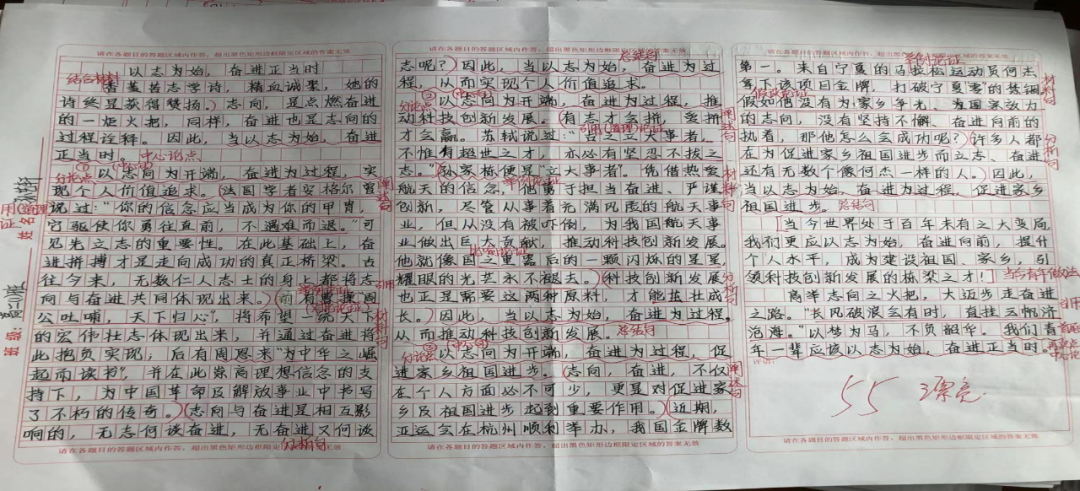 请在各题目的答题区域内作答,超出黑色矩形边框限定区域的答案无效
以志为始,奋进正当时
结合材料
香菱苦志学诗,精血诚聚,她的
诗终是获得赞扬。志向,是点燃奋进
的一炬火把,同样,奋进也是志向的
过程诠释。因此,当以志为始,奋进
正当时。
中心论点
分论点
以志向为开端,奋进为过程,实
现个人价值追求。法国学者安格尔曾
说过:“你的信念应当成为你的甲胄,
它驱使你勇往直前,不遇难而退。”可
见先立志的重要性。在此基础上,奋
进拼搏才是走向成功的真正桥梁。古
往今来,无数仁人志士的身上都将志
向与奋进共同体现出来。前有曹操“周
公吐哺,天下归心”,将希望一统天下
的宏伟壮志体现出来,并通过奋进将
此抱负实现;后有周恩来“为中华之崛
起而读书”,并在此崇高理想信念的支
持下,为中国革命及解放事业中书写
了不朽的传奇。志向与奋进是相互影
响的,无志何谈奋进,无奋进又何谈
分析句
请在各题目的答题区域内作答,超出黑色矩形边框限定区域的答案无效
请在各题目的答题区域内作答,超出黑色矩形边框限定区域的答案无效
总结句
志呢?因此,当以志为始,奋进为过
程,从而实现个人价值追求。
以志向为开端,奋进为过程,推
动科技创新发展。有志才会拼,要拼
才会赢。苏轼说过:“古之立大事者,
不惟有超世之才,亦必有坚忍不拔之
志。”孙家栋便是立大事者。凭借热爱
航天的信念,他勇于担当奋进、严谨
创新,尽管从事着充满风险的航天事
业,但从没有被吓倒,为我国航天事
业做出巨大贡献,推动科技创新发展。
他就像国之重器后的一颗闪烁的星星,
耀眼的光芒永不褪去。科技创新发展
也正是需要这两种原料,才能茁壮成
长。因此,当以志为始,奋进为过程。
从而推动科技创新发展。
总结句
以志向为开端,奋进为过程,促
进家乡祖国进步。志向,奋进,不仅
在个人方面必不可少,更是对促进家
乡及祖国进步起到重要作用。近期,
亚运会在杭州顺利举办,我国金牌数
请在各题目的答题区域内作答,超出黑色矩形边框限定区域的答案无效
请在各题目的答题区域内作答,超出黑色矩形边框限定区域的答案无效
举例论证
第一。来自宁夏的马拉松运动员何杰
拿下该项目金牌,打破宁夏零的焦铜
假如他没有为家乡争光、为国家效力
的志向,没有坚持不懈、奋进向前的
执着,那他怎么会成功呢?许多人都
在为促进家乡祖国进步而立志、奋进
还有无数个像何杰一样的人。因此,
当以志为始、奋进为过程,促进家乡
祖国进步。
总结句
当今世界处于百年未有之大变局,
我们更应以志为始,奋进向前,提升
个人水平,成为建设祖国、家乡,引
领科技创新发展的栋梁之才!
当今青年做法
高举志向之火把,大迈步走奋进
之路。“长风破浪会有时,直挂云帆济
沧海。”以梦为马,不负韶华。我们青
年一辈应该以志为始、奋进正当时。
55 漂亮
请在各题目的答题区域内作答,超出黑色矩形边框限定区域的答案无效